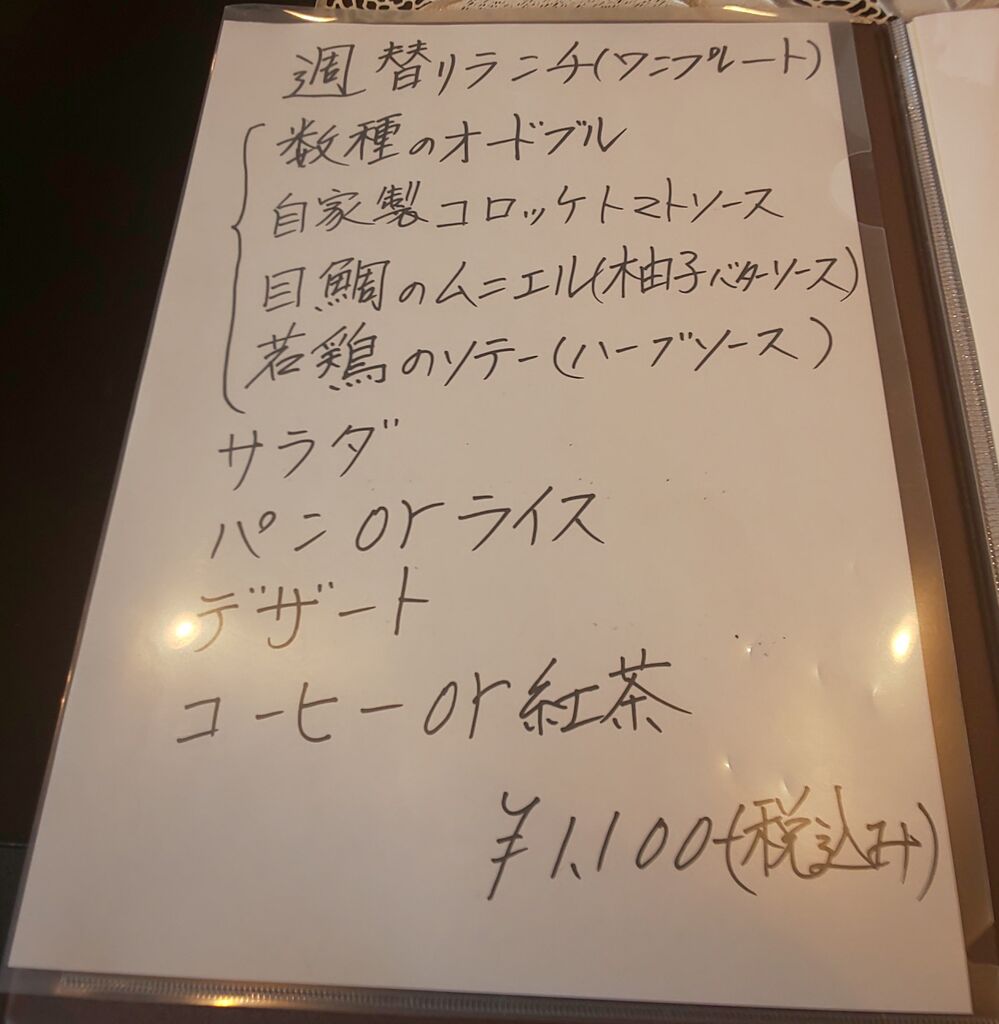 週替リランチ(ワンプレート)
数種のオードブル
自家製コロッケトマトソース
目鯛のムニエル(柚子バターソース)
若鶏のソテー(ハーブソース)
サラダ
パンorライス
デザート
コーヒーor紅茶
¥1,100(税込み)